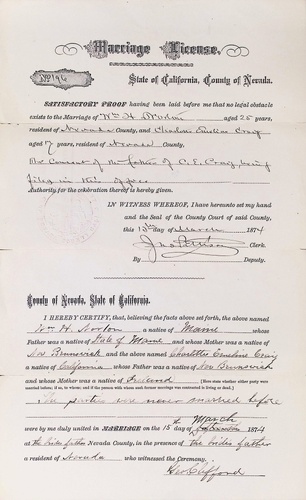 Marriage License.
No 196
State of California, County of Nevada.
SATISFACTORY PROOF having been laid before me that no legal obstacle
exists to the Marriage of Wm H. Norton aged 25 years,
resident of Nevada County, and Charlotte Emeline Craig
aged 17 years, resident of Nevada County.
The consent of the father of C. E. Craig being
filed in this office
Authority for the celebration thereof is hereby given.
IN WITNESS WHEREOF, I have hereunto set my hand
and the Seal of the County Court of said County,
this 13th day of March 1874
Clerk.
By Deputy.
County of Nevada, State of California.
I HEREBY CERTIFY, that, believing the facts above set forth, the above named
Wm H. Norton a native of Maine whose
Father was a native of State of Maine, and whose Mother was a native of
New Brunswick, and the above named Charlotte Emeline Craig
a native of California whose Father was a native of New Brunswick
and whose Mother was a native of [Here state whether either party were
married before; if so, to whom; and if the person with whom former marriage was contracted is living or dead.]
The parties were never married before
March
were by me duly united in MARRIAGE on the 15th of 1874
at the brides father Nevada County, in the presence of the brides father
a resident of Nevada who witnessed the Ceremony.
Geo Clifford